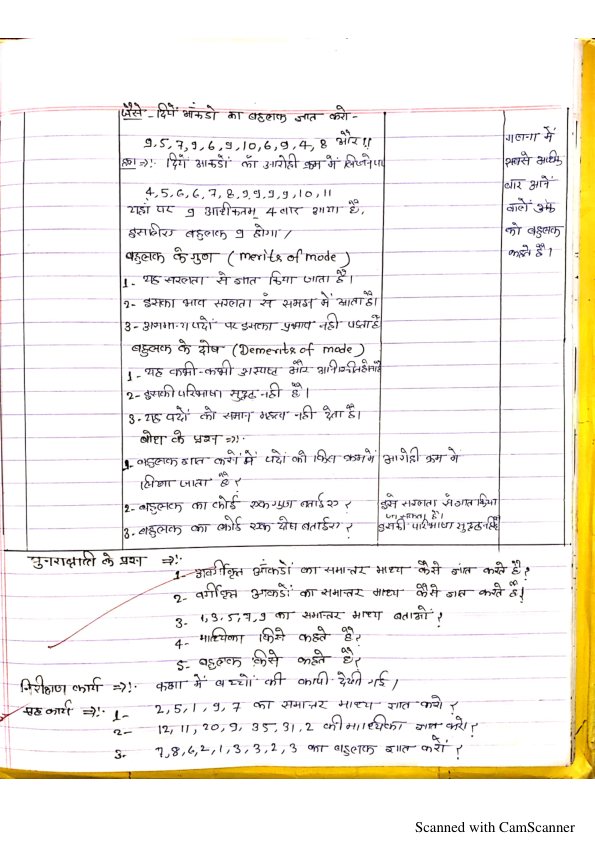 जैसे - दिये आँकडो का बहुलक ज्ञात करो -
9, 5, 7, 9, 6, 9, 10, 6, 9, 4, 8 और 11
हल => :- दिये आकडों को आरोही क्रम में लिखने पर
4, 5, 6, 6, 7, 8, 9, 9, 9, 9, 10, 11
यहां पर 9 अधिकतम 4 बार आया है,
इसलिए बहुलक 9 होगा /
गणना में
सबसे अधिक
बार आने
वाले अंक
को बहुलक
कहते है ।
बहुलक के गुण ( merits of mode )
1- यह सरलता से ज्ञात किया जाता है।
2- इसका भाव सरलता से समझ में आता है।
3- पदों पर इसका प्रभाव नही पडता है
बहुलक के दोष (Demerits of mode )
1- यह कभी-कभी अस्पष्ट और
2- इसकी परिभाषा सुदृढ नही है।
3- यह पदों को समान महत्व नही देता है।
बोध के प्रश्न =>:-
1- बहुलक ज्ञात करने में पदों को किस क्रम में
लिखा जाता है ?
आरोही क्रम में
2- बहुलक का कोई एक गुण बताईए ?
इसे सरलता से ज्ञात किया
जा सकता है।
3- बहुलक का कोई एक दोष बताईए ?
इसकी परिभाषा सुदृढ नही
पुनरावृत्ति के प्रश्न =>:-
1- अवर्गीकृत आँकडों का समान्तर माध्य कैसे ज्ञात करते है ?
2- वर्गीकृत आकडों का समान्तर माध्य कैसे ज्ञात करते है ?
3- 1, 3, 5, 7, 9 का समान्तर माध्य बताओं ?
4- माध्यिका किसे कहते है ?
5- बहुलक किसे कहते है ?
निरीक्षण कार्य =>:- कक्षा में बच्चों की कापी देखी गई /
गृह कार्य =>:- 1- 2, 5, 1, 9, 7 का समान्तर माध्य ज्ञात करो ?
2- 12, 11, 20, 9, 35, 31, 2 की माध्यिका ज्ञात करो ?
3- 7, 8, 6, 2, 1, 3, 3, 2, 3 का बहुलक ज्ञात करों ?
Scanned with CamScanner